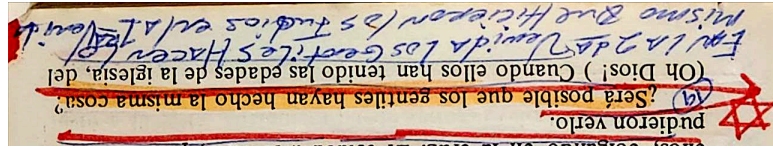 pudieron verlo.
19 ¿Será posible que los gentiles hayan hecho la misma cosa?
(Oh Dios! ) Cuando ellos han tenido las edades de la iglesia, del
EN LA 2da Venida Los Gentiles Hacen Lo
mismo Que Hicieron Los Judios en la 1ra Venida